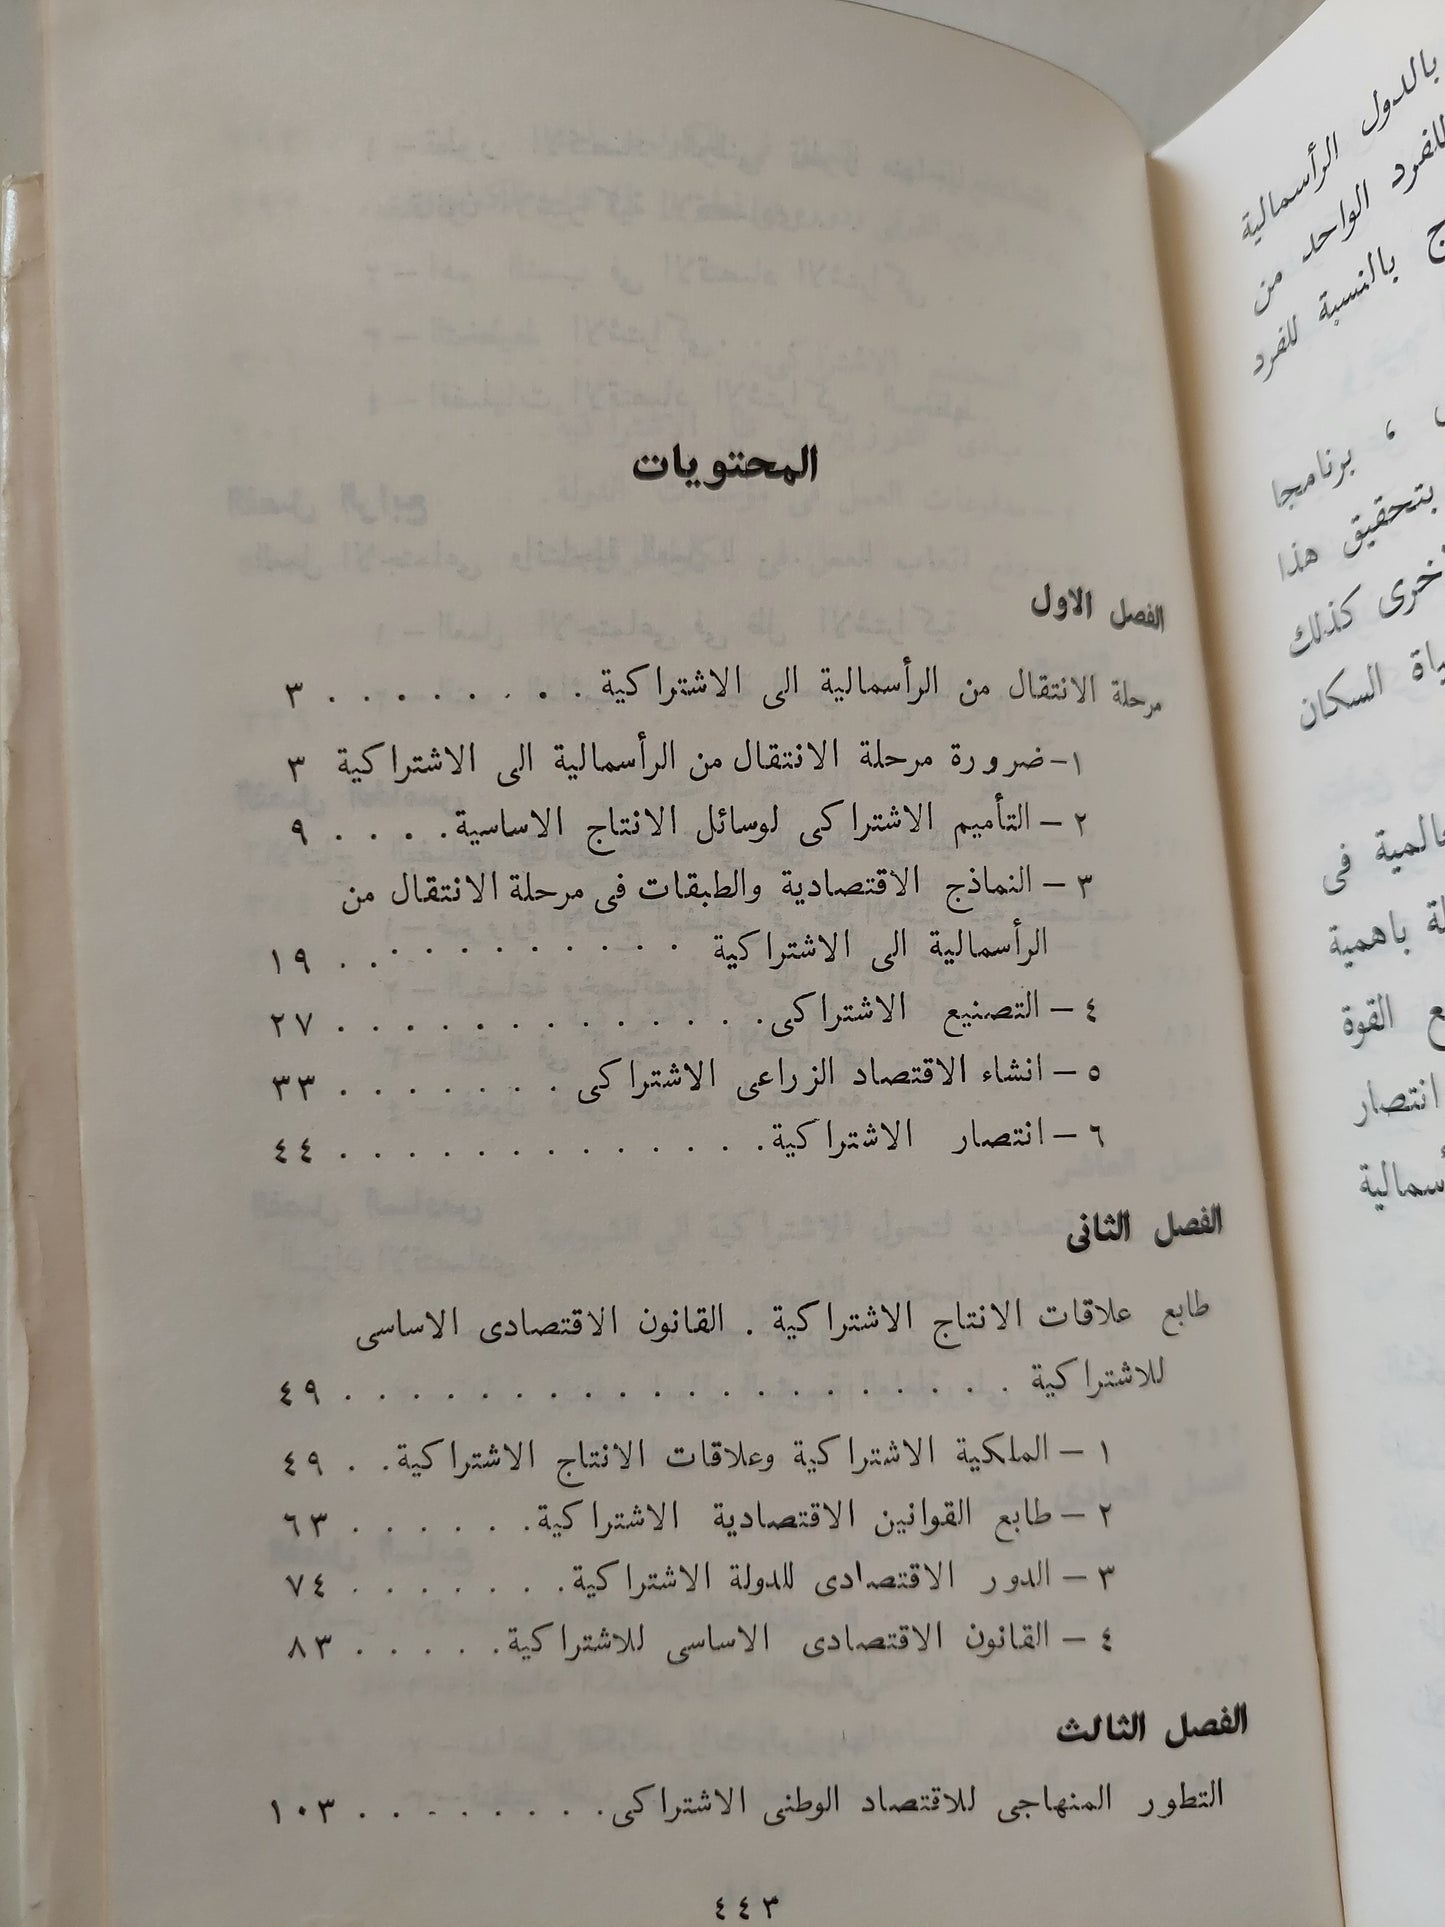 المحتويات
الفصل الاول
مرحلة الانتقال من الرأسمالية الى الاشتراكية . . . . . . . . . ٣
١- ضرورة مرحلة الانتقال من الرأسمالية الى الاشتراكية ٣
٢ - التأميم الاشتراكى لوسائل الانتاج الاساسية. . . . . ٩
٣ - النماذج الاقتصادية والطبقات فى مرحلة الانتقال من
الرأسمالية الى الاشتراكية . . . . . . . . . . . ١٩
٤ - التصنيع الاشتراكى. . . . . . . . . . . . . ٢٧
٥ - انشاء الاقتصاد الزراعى الاشتراكى . . . . . . . ٣٣
٦ - انتصار الاشتراكية. . . . . . . . . . . . . ٤٤
الفصل الثانى
طابع علاقات الانتاج الاشتراكية . القانون الاقتصادى الاساسى
للاشتراكية . . . . . . . . . . . . . . . . ٤٩
١ - الملكية الاشتراكية وعلاقات الانتاج الاشتراكية. . . ٤٩
٢ - طابع القوانين الاقتصادية الاشتراكية. . . . . . . ٦٣
٣ - الدور الاقتصادى للدولة الاشتراكية. . . . . . . ٧٤
٤ - القانون الاقتصادى الاساسى للاشتراكية. . . . . . ٨٣
الفصل الثالث
التطور المنهاجى للاقتصاد الوطنى الاشتراكى. . . . . . . . ١٠٣
٤٤٣
بالدول الرأسمالية
للفرد الواحد من
بالنسبة للفرد
، برنامجا
بتحقيق هذا
أخرى كذلك
السكان
فى
باهمية
القوة
انتصار